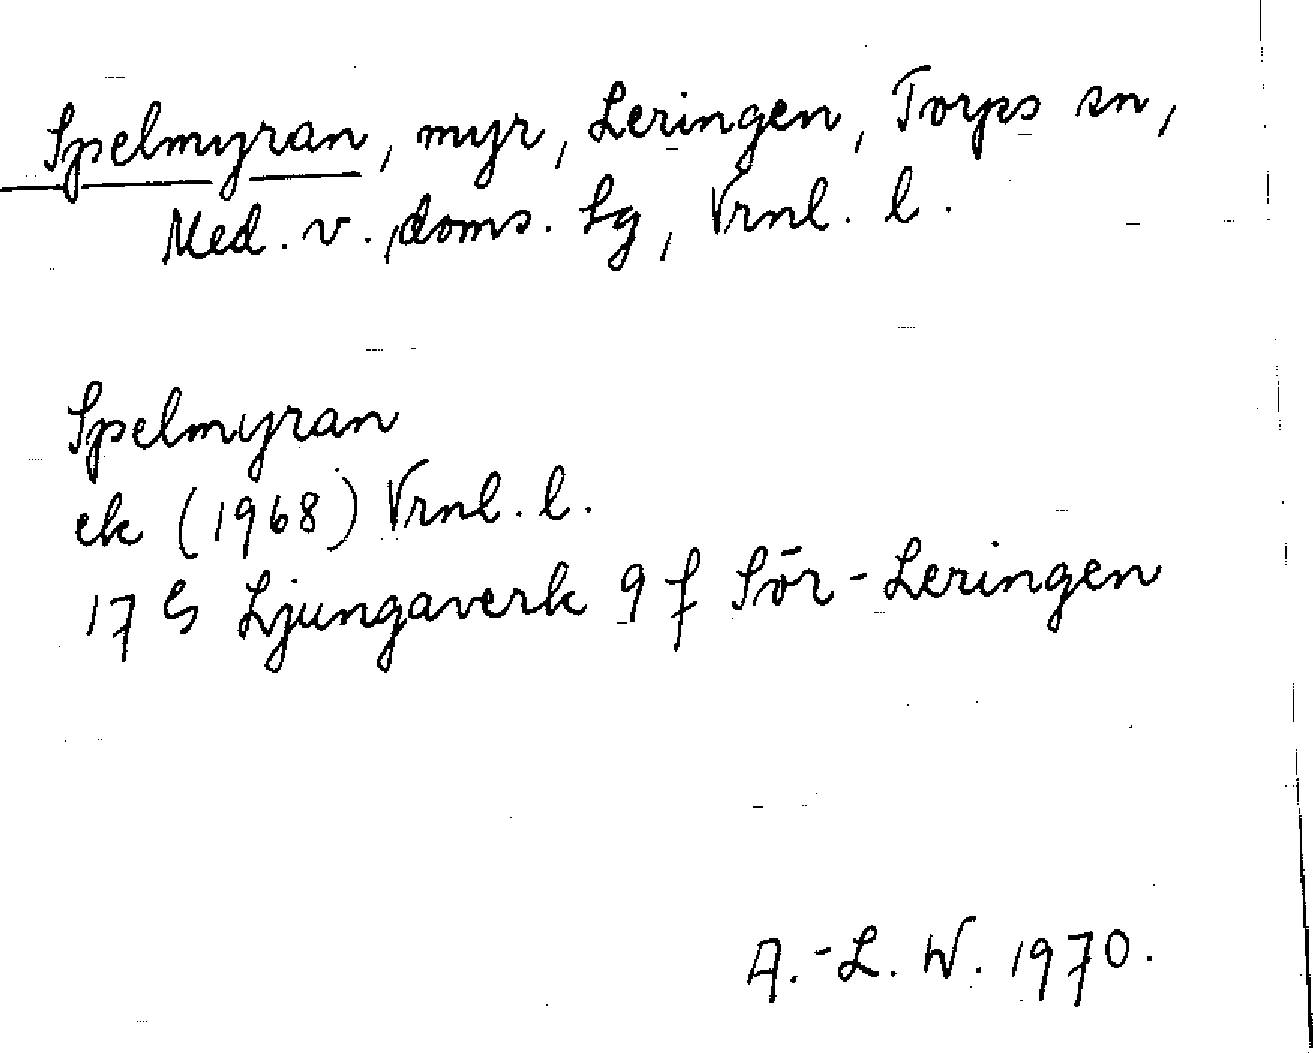 Spelmyran, myr, Leringen, Torps sn,
Med. v. doms. Lg, Vrnl. l.
Spelmyran
ek (1968) Vrnl. l.
17 G Ljungaverk 9 f Sör-Leringen
A.-L. W. 1970.